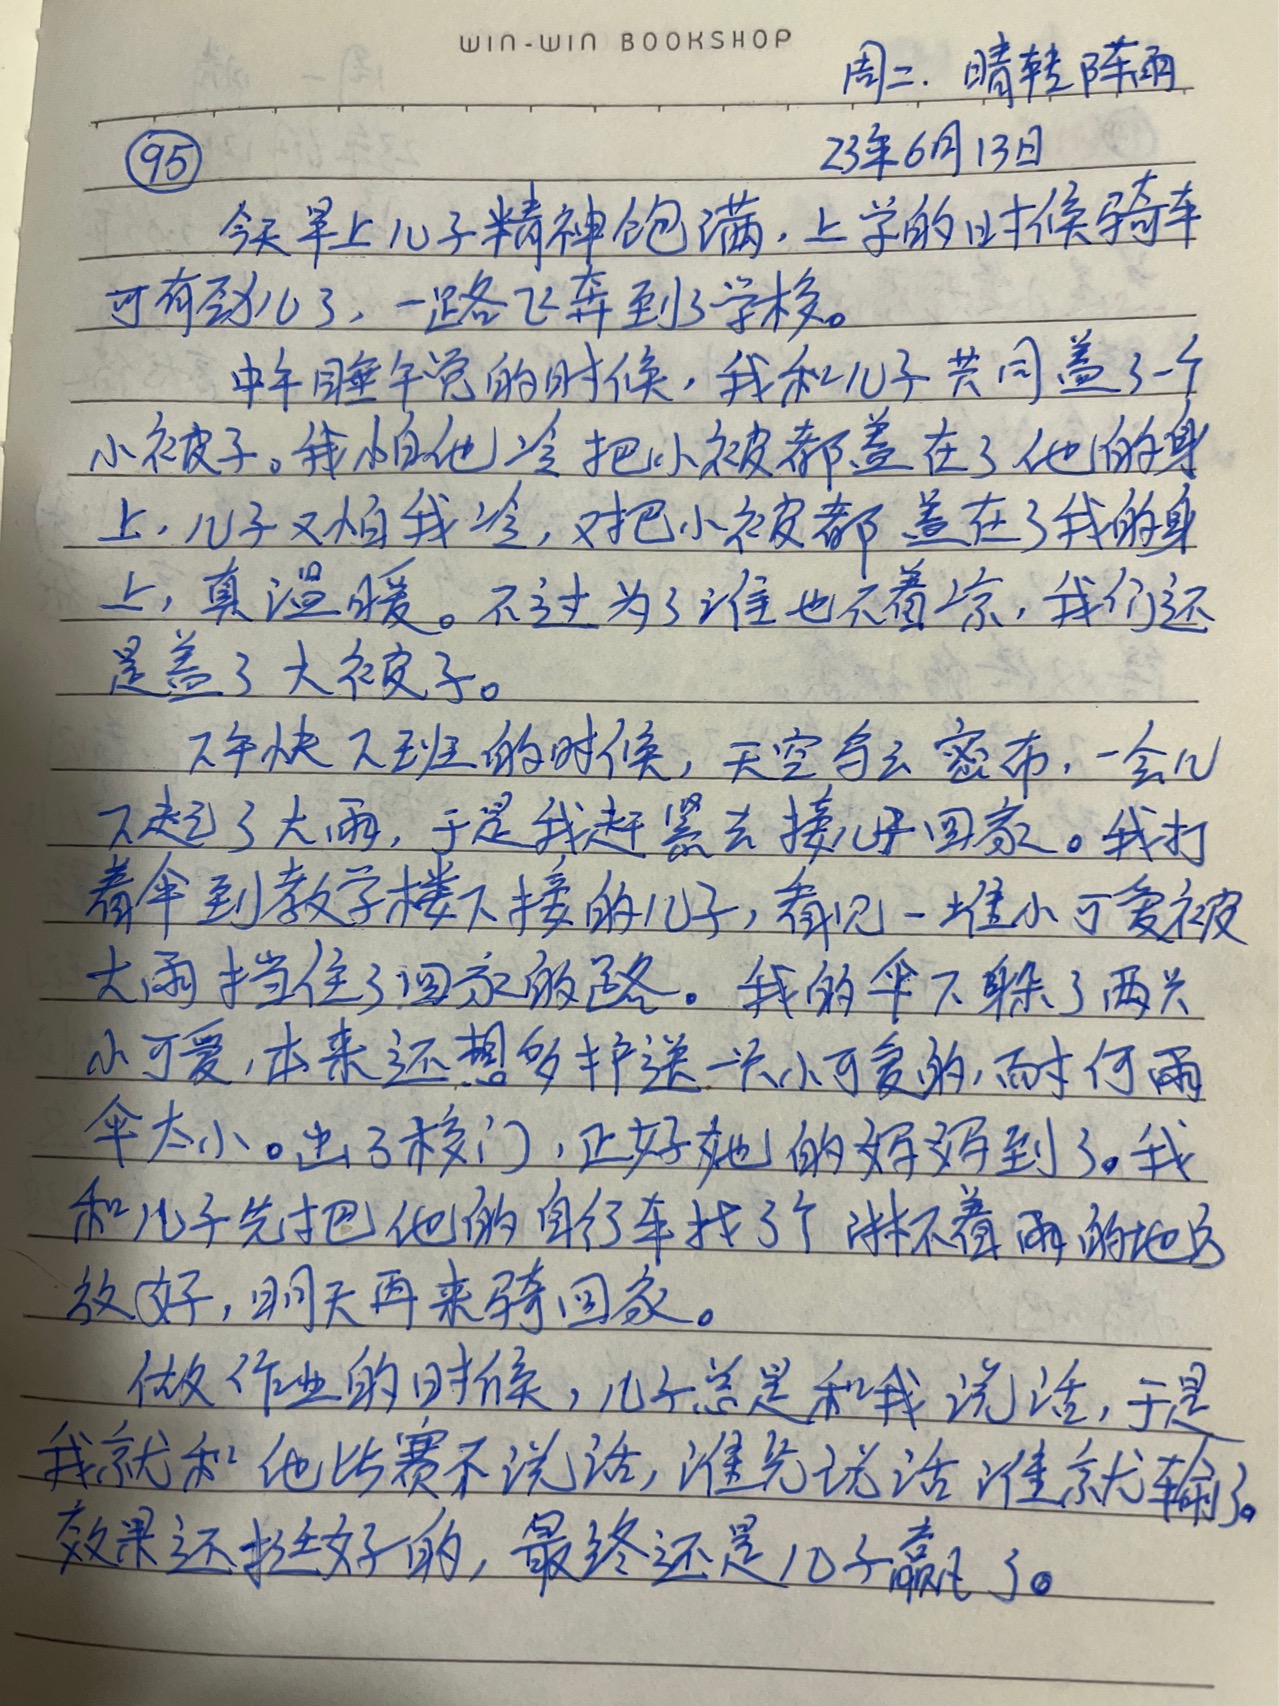 WIN-WIN BOOKSHOP
周二. 晴转阵雨
95
23年6月13日
今天早上儿子精神饱满，上学的时候骑车
可有劲儿了，一路飞奔到了学校。
中午睡午觉的时候，我和儿子共同盖了一个
小被子。我怕他冷把小被都盖在了他的身
上，儿子又怕我冷，又把小被都盖在了我的身
上，真温暖。不过为了谁也不着凉，我们还
是盖了大被子。
下午快下班的时候，天空乌云密布，一会儿
下起了大雨，于是我赶紧去接儿子回家。我打
着伞到教学楼下接的儿子，看见一堆小可爱被
大雨挡住了回家的路。我的伞下躲了两只
小可爱，本来还想多护送一只小可爱的，而何雨
伞太小。出了校门，正好她的妈妈到了。我
和儿子先把他的自行车找了个淋不着雨的地方
放好，明天再来骑回家。
做作业的时候，儿子总是和我说话，于是
我就和他比赛不说话，谁先说话谁就输了。
效果还挺好的，最终还是儿子赢了。